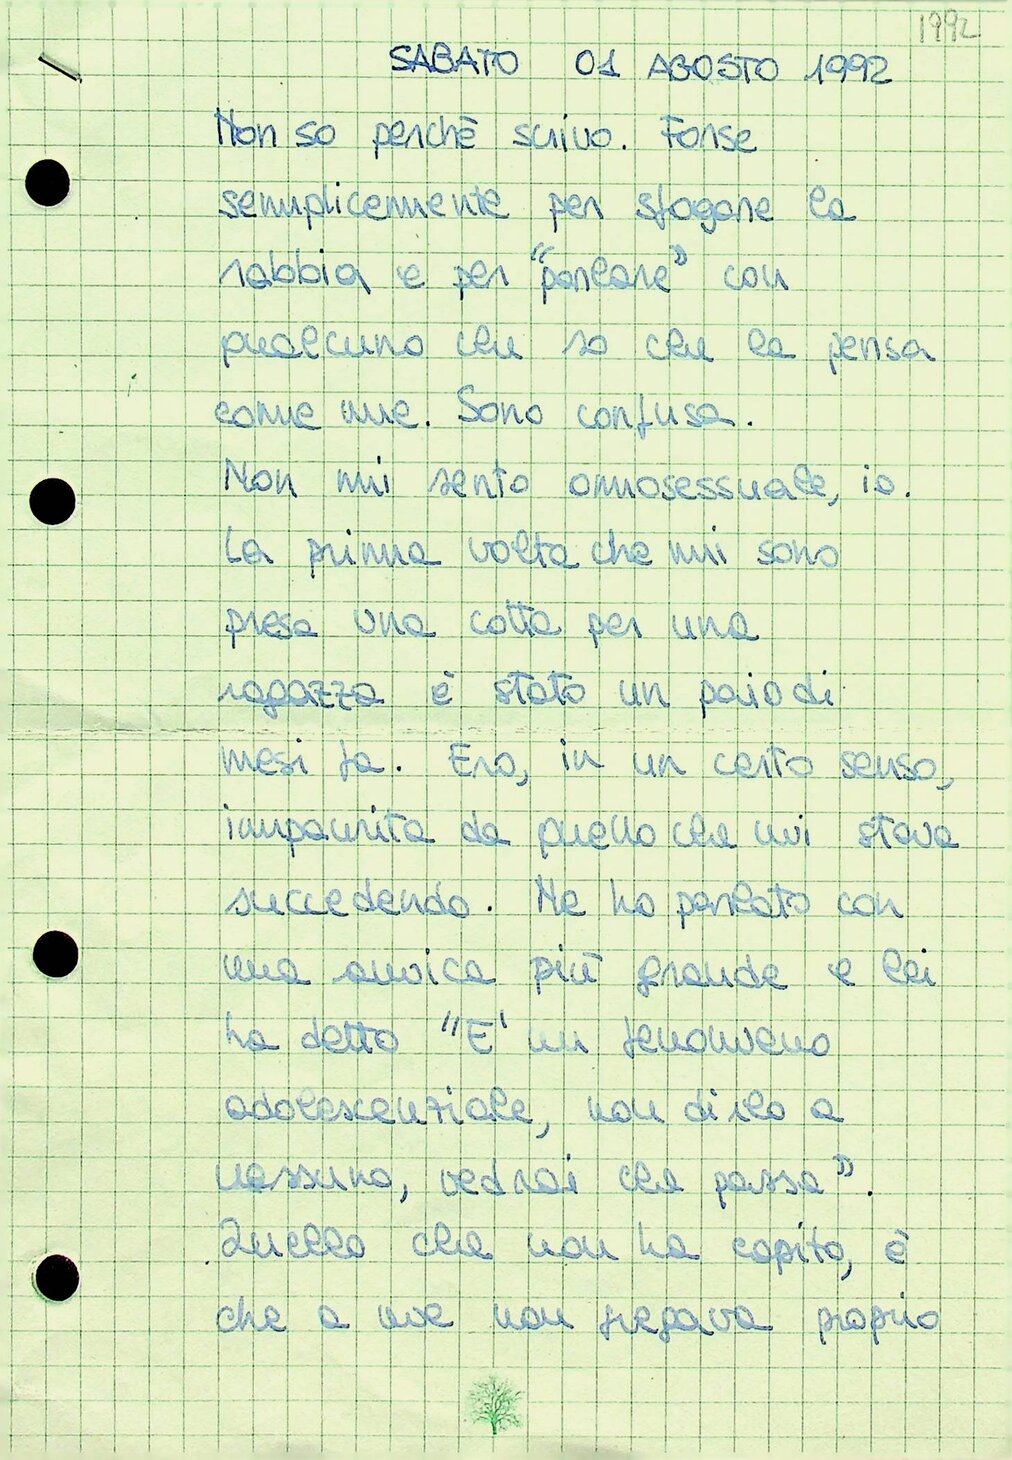 1992
SABATO 01 AGOSTO 1992
Non so perchè scrivo. Forse
semplicemente per sfogare la
rabbia e per "parlare" con
qualcuno che so che la pensa
come me. Sono confusa.
Non mi sento omosessuale, io.
La prima volta che mi sono
presa una cotta per una
ragazza è stato un paio di
mesi fa. Ero, in un certo senso,
impaurita da quello che mi stava
succedendo. Ne ho parlato con
una amica più grande e lei
ha detto "E' un fenomeno
adolescenziale, non dirlo a
nessuno, vedrai che passa".
Quello che non ha capito, è
che a me non fregava proprio